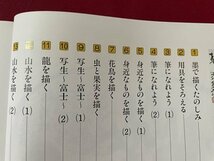 1 墨で描くたのしみ
2 用具をそろえる
3 筆になれよう (1)
4 筆になれよう (2)
5 身近なものを描く (1)
6 身近なものを描く (2)
7 花鳥を描く
8 虫と果実を描く
9 写生〜富士〜 (1)
10 写生〜富士〜 (2)
11 龍を描く
12 山水を描く (1)
13 山水を描く (2)